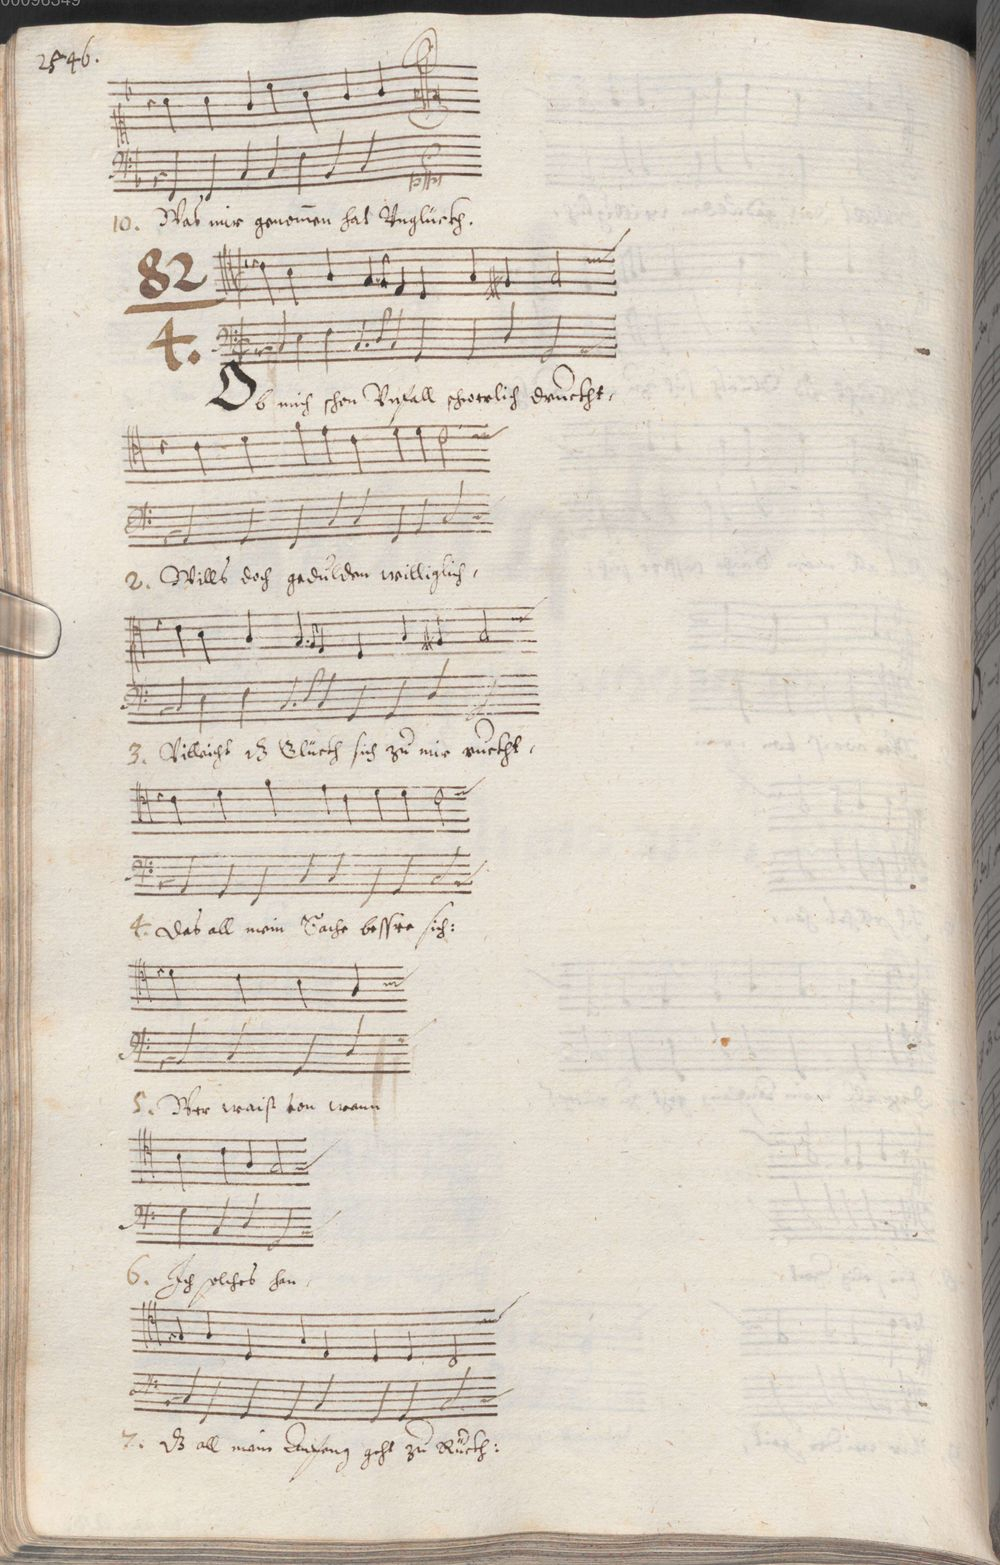 00098349
2546.
10. Was mir genomen hat Unglückh.
82
4.
Ob mich schon Unfall schwerlich druckht,
2. Wills doch gedulden williglich,
3. Villeicht dz Glückh sich zu mir ruckht,
4. das all mein Sache bessre sich:
5. Wer waist von wann
6. Ich solches han,
7. dz all mein Anfang geht zu Rückh: